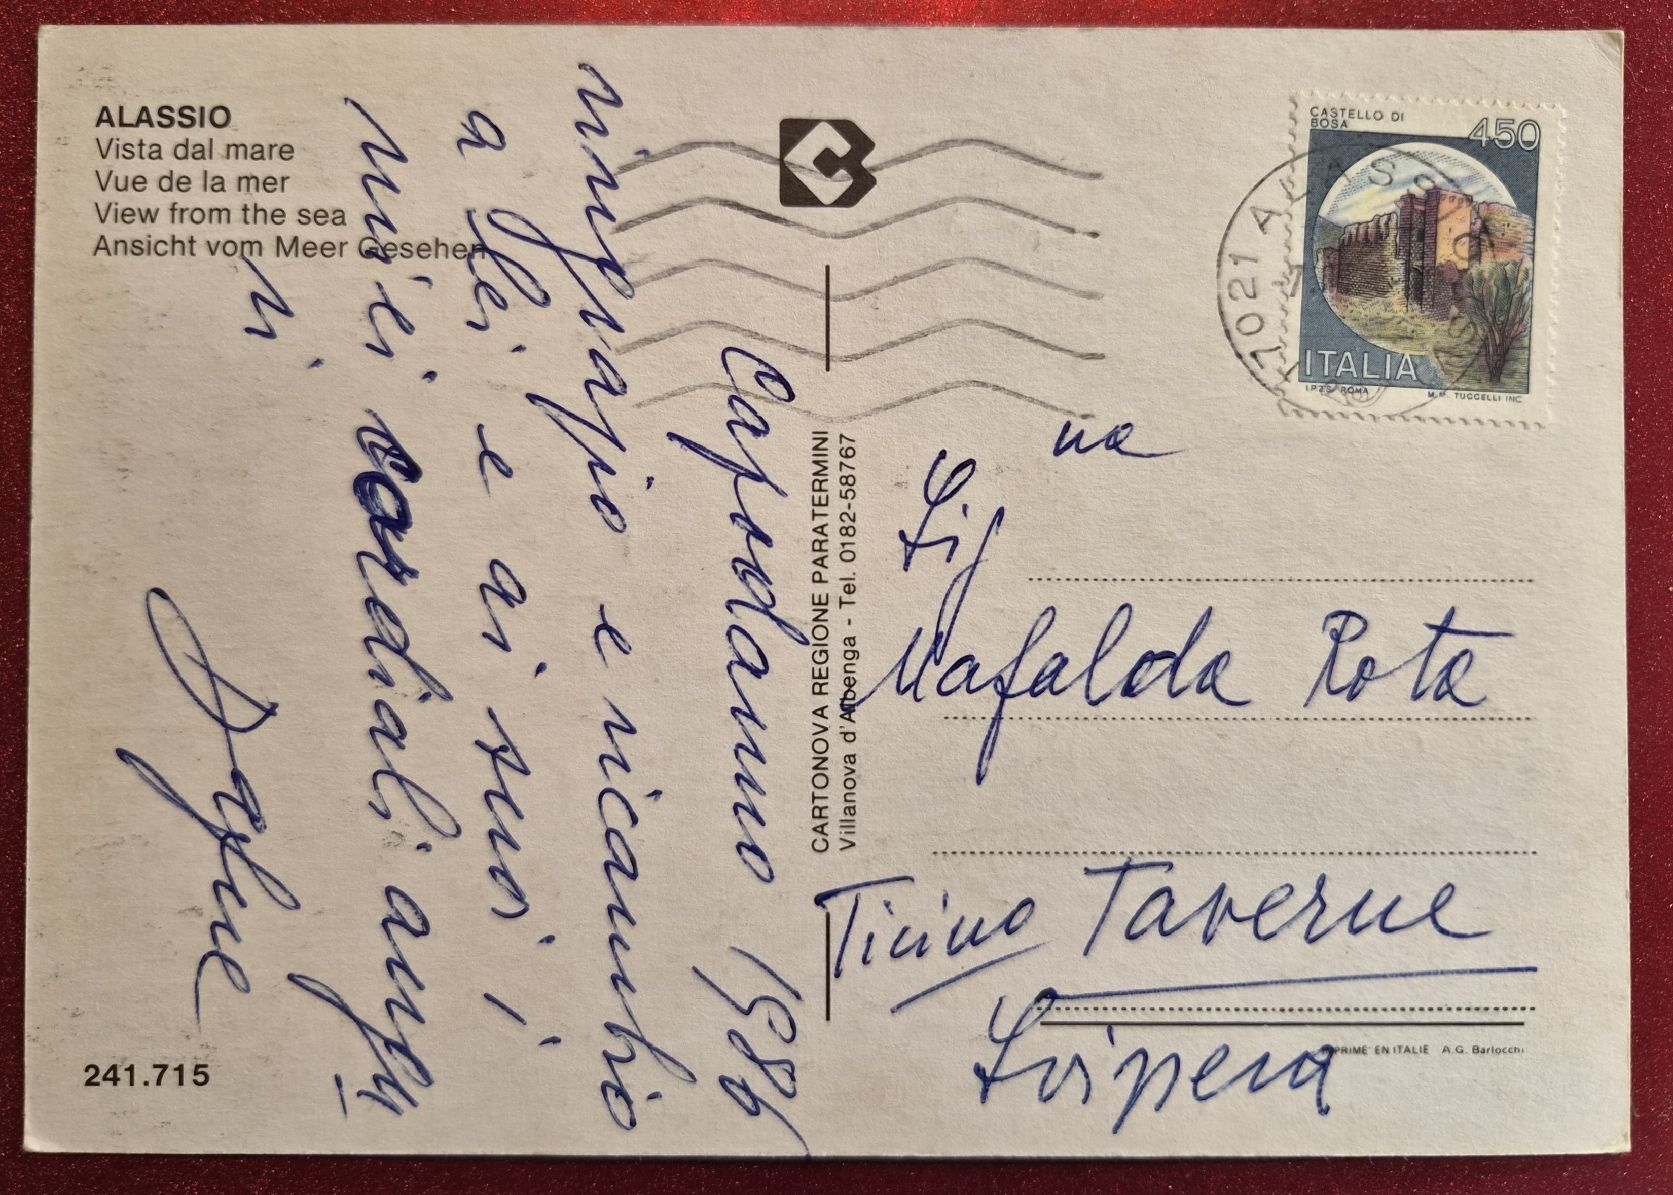 ALASSIO
Vista dal mare
Vue de la mer
View from the sea
Ansicht vom Meer Gesehen
Capodanno 1986
ringrazio e ricambio
a Lei e ai suoi i
miei cordiali augu
ri
Dafne
241.715
CARTONOVA REGIONE PARATERMINI
Villanova d'Albenga - Tel. 0182-58767
CASTELLO DI
BOSA
450
ITALIA
I.P.Z.S. ROMA
M.M. TUCCELLI INC.
17021 ALASSIO
Sig na
Mafalda Rota
Ticino Taverne
Svizzera
IMPRIME' EN ITALIE A.G. Barlocchi